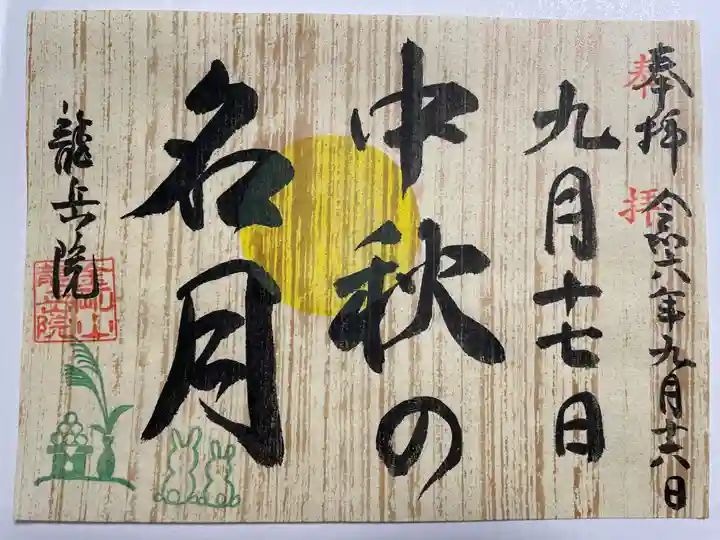 奉拝 令和六年九月十六日
奉拝
九月十七日
中秋の
名月
龍岳院